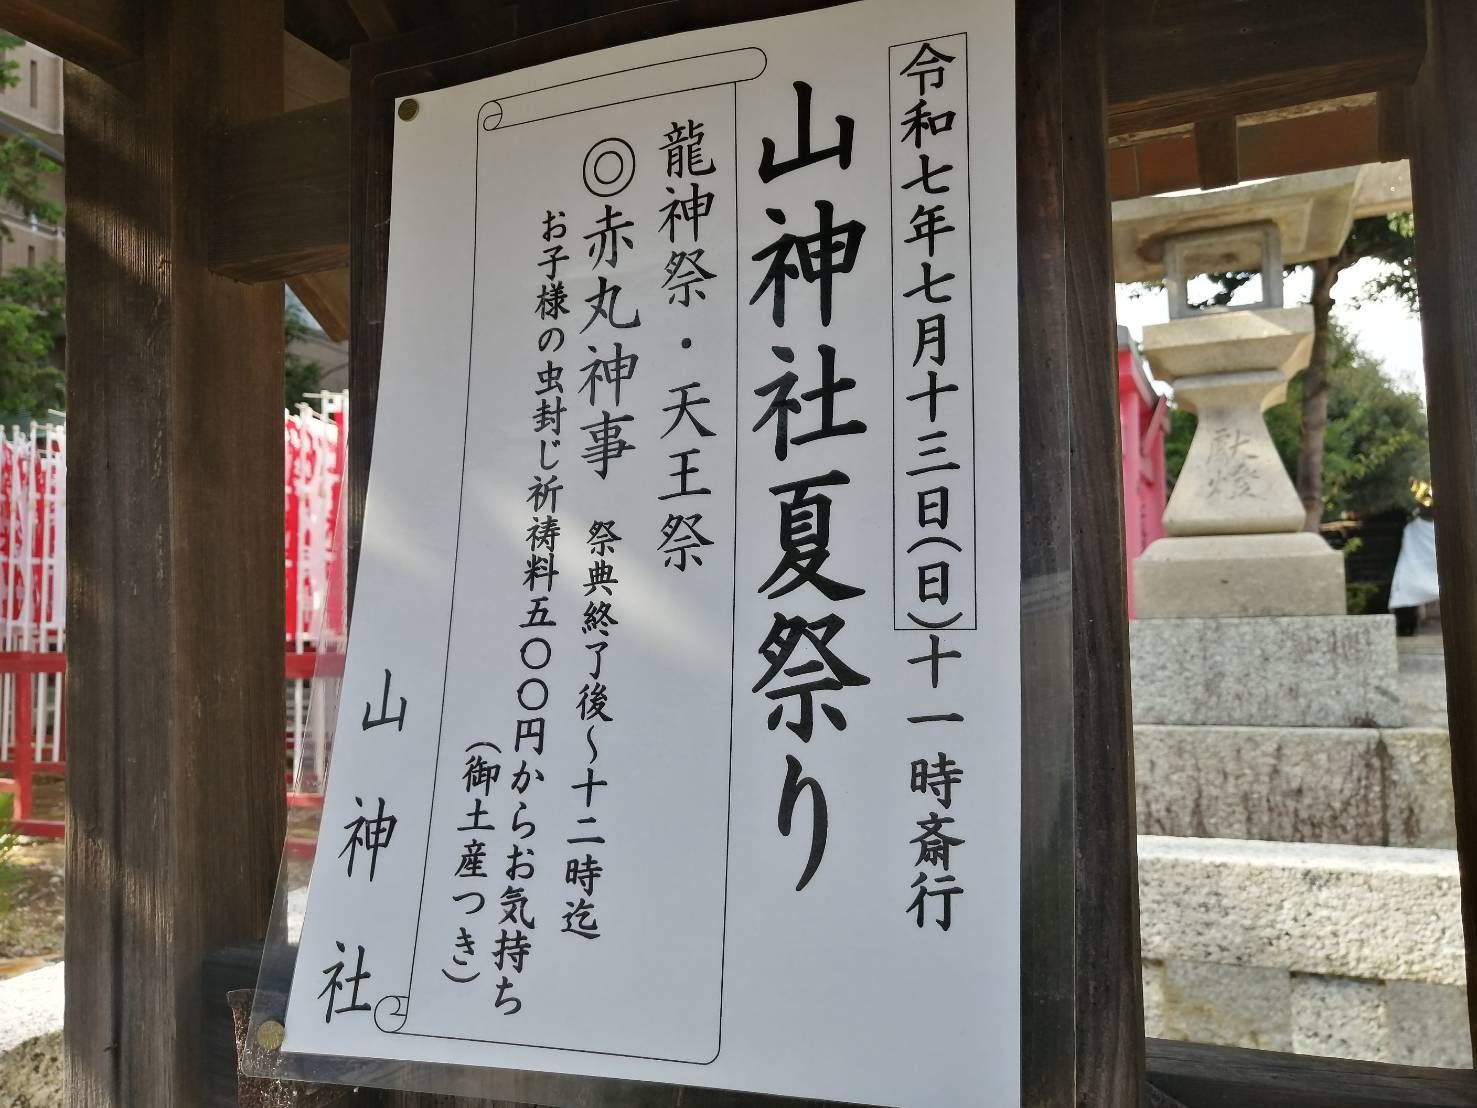 令和七年七月十三日(日)十一時斎行
山神社夏祭り
龍神祭・天王祭
◎赤丸神事 祭典終了後～十二時迄
お子様の虫封じ祈祷料五〇〇円からお気持ち
(御土産つき)
山神社
献燈